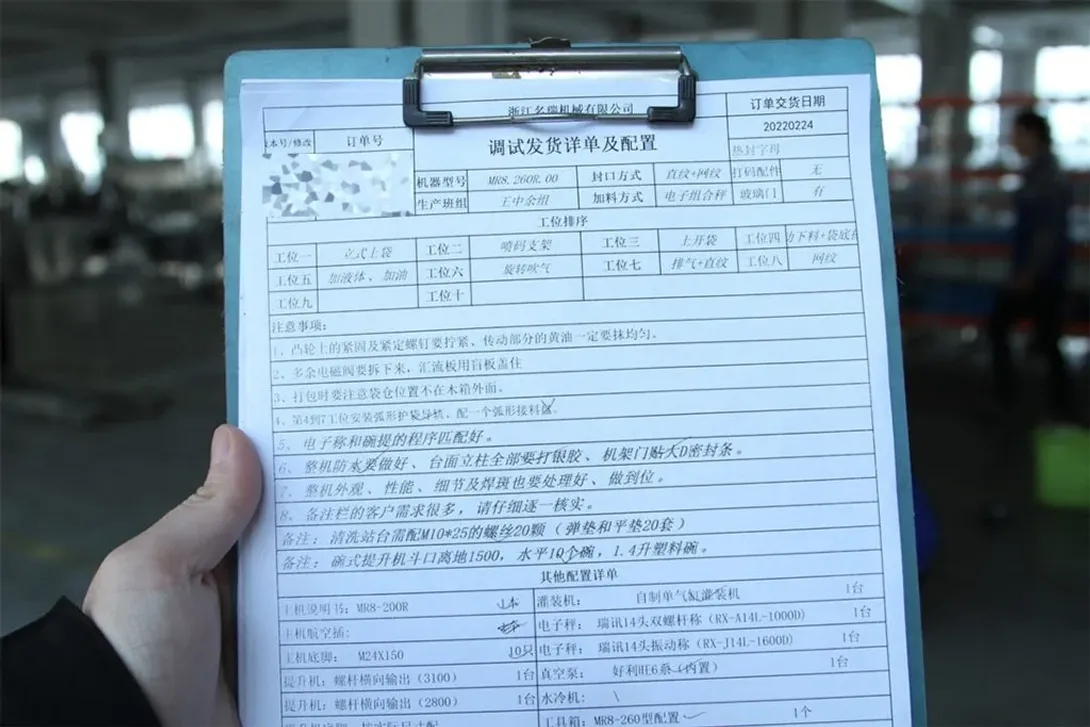 浙江名瑞机械有限公司
调试发货详单及配置
订单交货日期
20220224
版本号/修改 订单号
热封字母
机器型号 MR8.260R.00 封口方式 直纹+网纹 打码配件 无
生产班组 王中余组 加料方式 电子组合秤 玻璃门 有
工位排序
工位一 立式上袋 工位二 喷码支架 工位三 上开袋 工位四 下料+袋底
工位五 加液体、加油 工位六 旋转吹气 工位七 排气+直纹 工位八 网纹
工位九 工位十
注意事项:
1、凸轮上的紧固及紧定螺钉要拧紧、传动部分的黄油一定要抹均匀。
2、多余电磁阀要拆下来,汇流板用盲板盖住
3、打包时要注意袋仓位置不在木箱外面。
4、第4到7工位安装弧形护袋导轨、配一个弧形接料盘。
5、电子称和碗提的程序匹配好。
6、整机防水要做好、台面立柱全部要打银胶、机架门贴大D密封条。
7、整机外观、性能、细节及焊斑也要处理好、做到位。
8、备注栏的客户需求很多,请仔细逐一核实。
备注:清洗站台需配M10*25的螺丝20颗(弹垫和平垫20套)
备注:碗式提升机斗口离地1500,水平10个碗,1.4升塑料碗。
其他配置详单
主机说明书:MR8-200R 1本 灌装机: 自制单气缸灌装机 1台
主机航空插: 电子秤: 瑞讯14头双螺杆称(RX-A14L-1000D) 1台
主机底脚: M24X150 10只 电子秤: 瑞讯14头振动称(RX-J14L-1600D) 1台
提升机:螺杆横向输出(3100) 1台 真空泵: 好利旺6系(内置) 1台
提升机:螺杆横向输出(2800) 1台 水冷机: \
工具箱:MR8-260型配置 1个